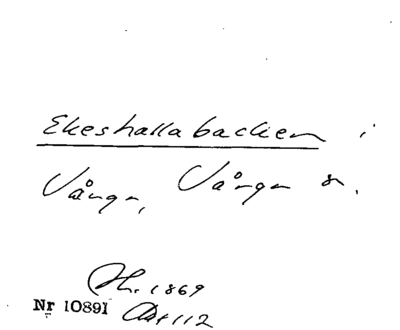 Ekeshallabacken i
Vånga, Vånga sn.
1869
Nr 10891 112